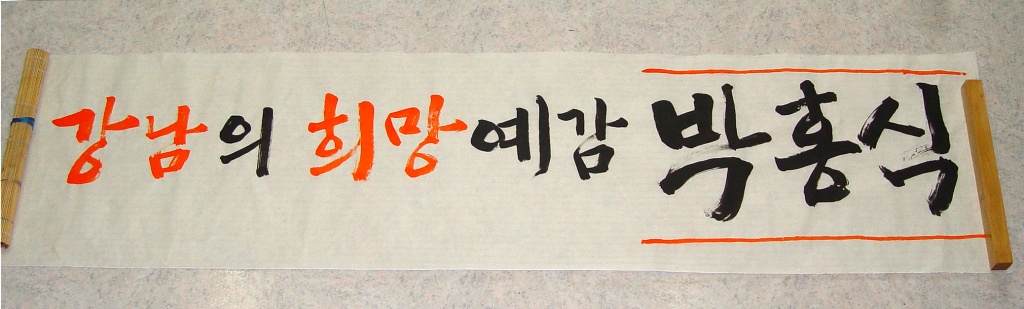 강남의 희망예감 박홍식